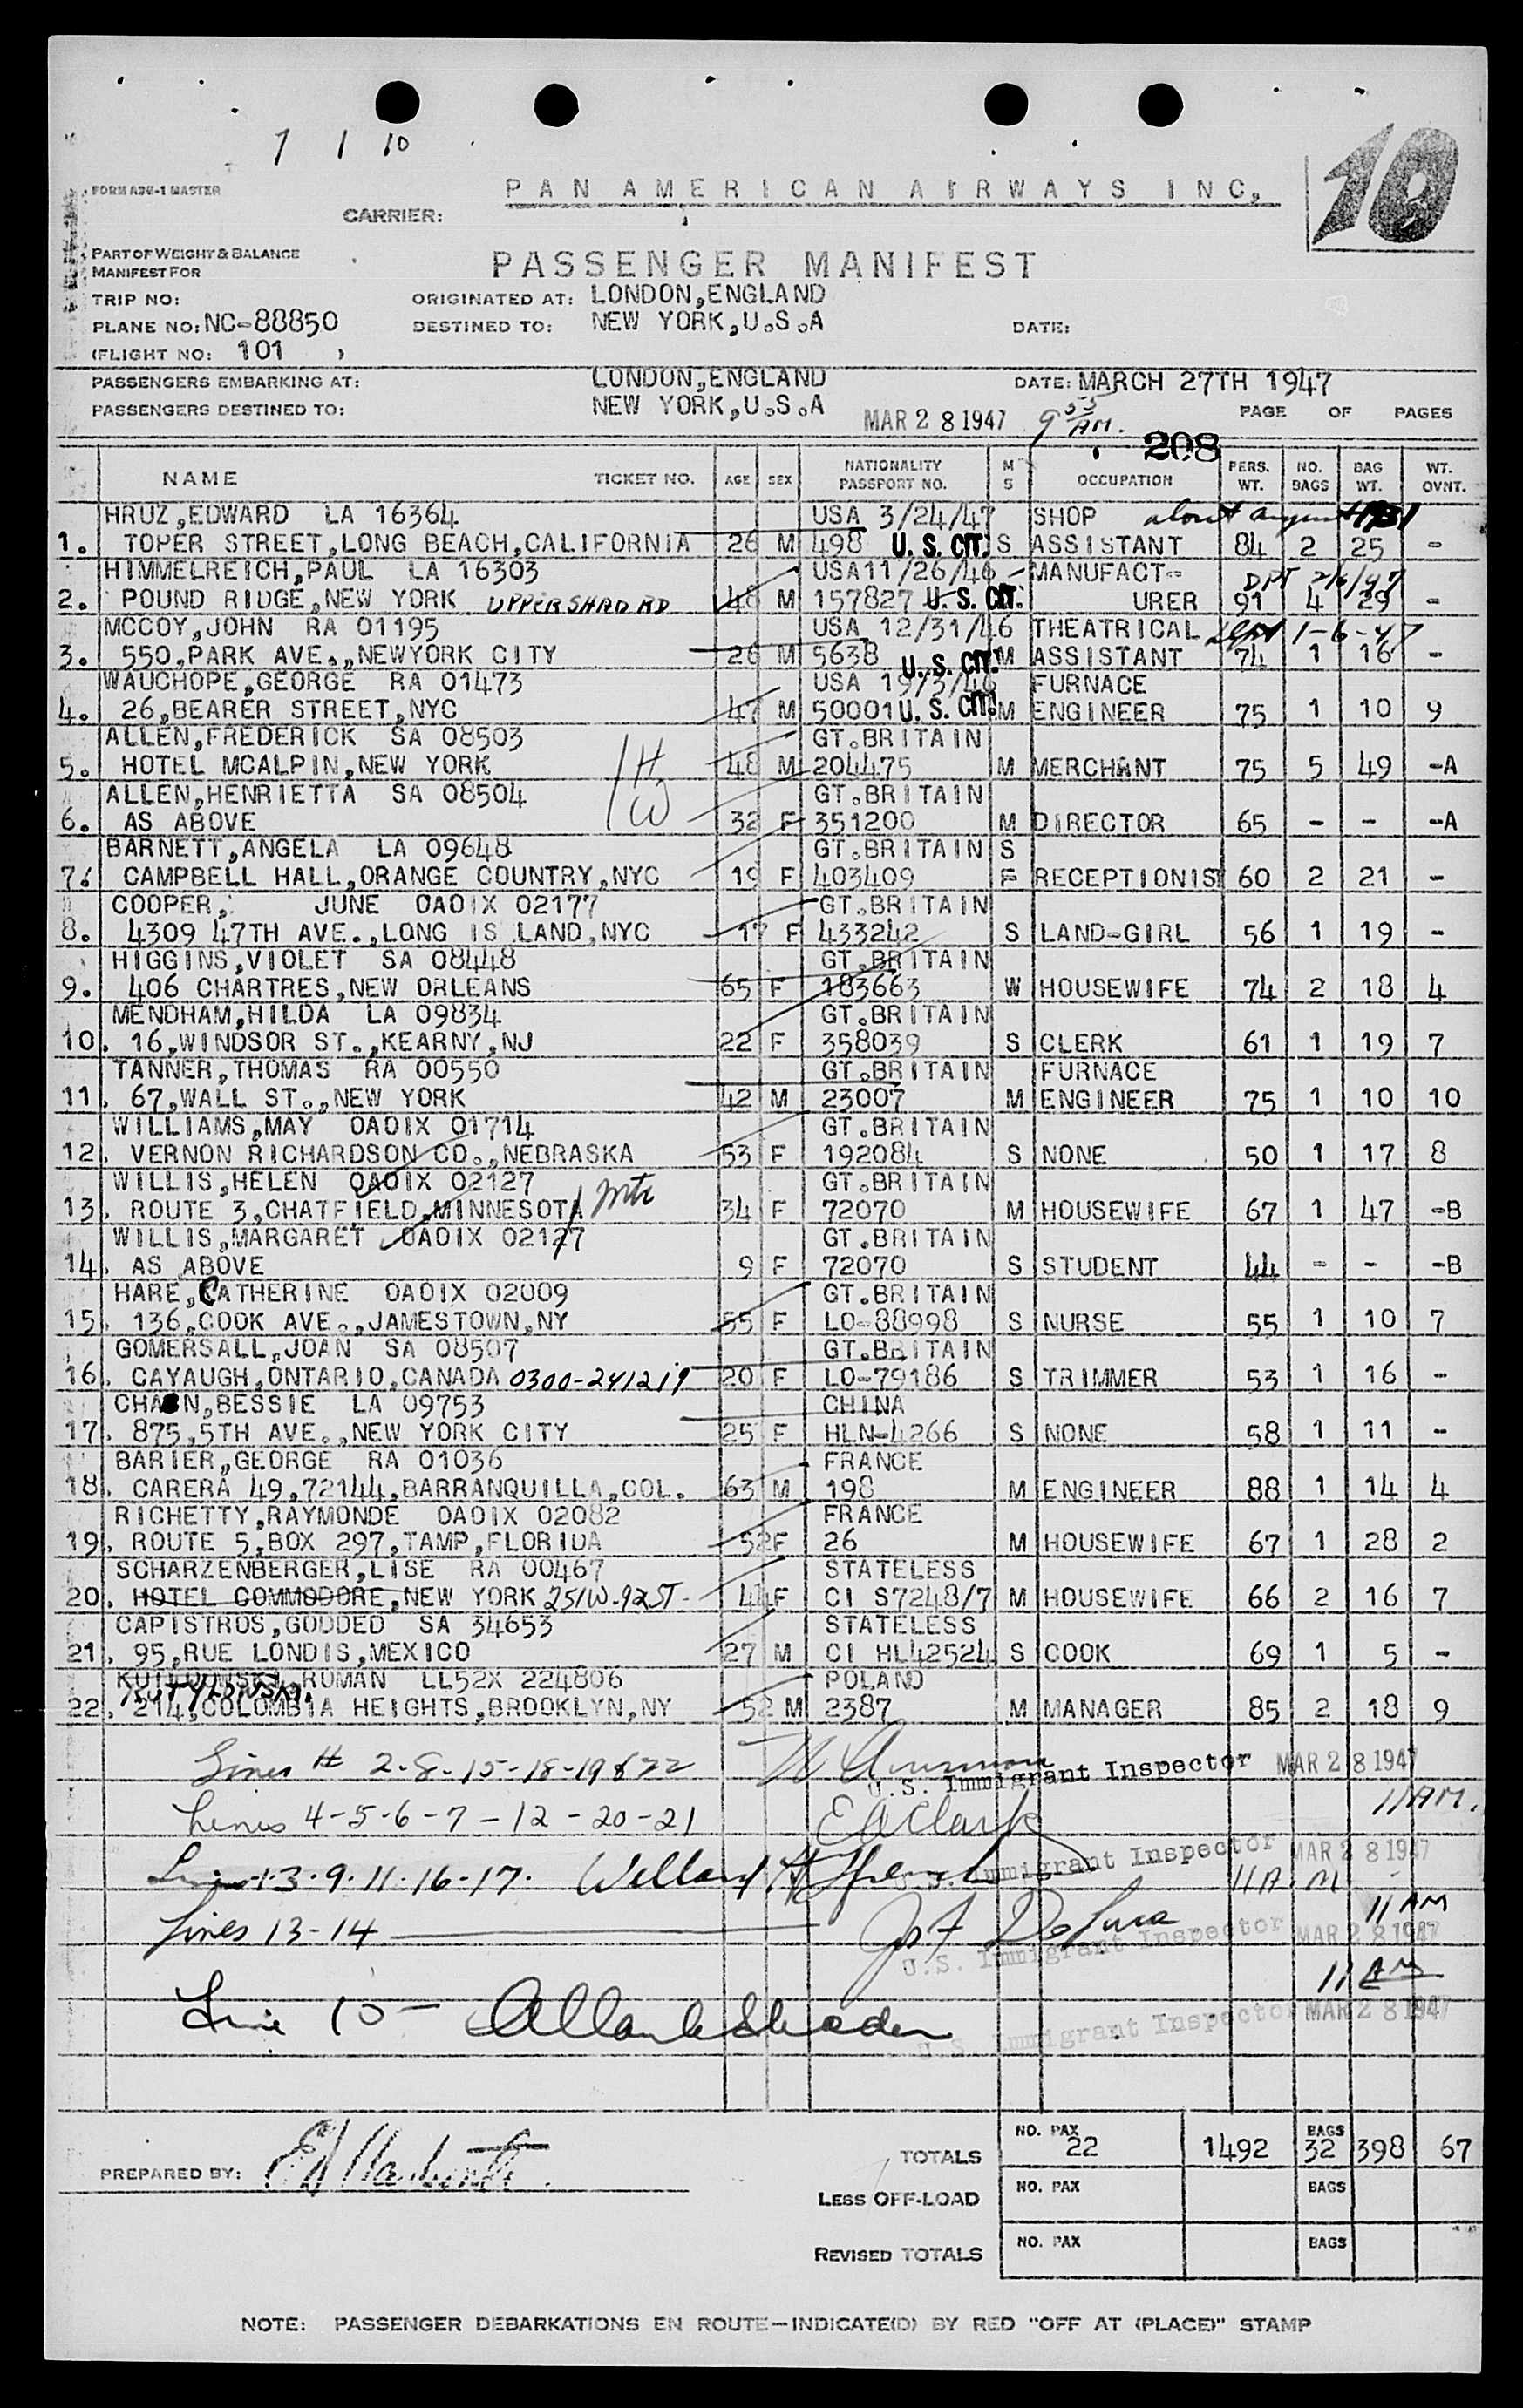 7 1 10
10
FORM ADV-1 MASTER
CARRIER: PAN AMERICAN AIRWAYS INC,
PART OF WEIGHT & BALANCE
MANIFEST FOR
PASSENGER MANIFEST
TRIP NO: ORIGINATED AT: LONDON,ENGLAND
PLANE NO: NC-88850 DESTINED TO: NEW YORK,U.S.A DATE:
(FLIGHT NO: 101 )
PASSENGERS EMBARKING AT: LONDON,ENGLAND DATE: MARCH 27TH 1947
PASSENGERS DESTINED TO: NEW YORK,U.S.A MAR 28 1947 9 55 AM. PAGE OF PAGES
208
NAME TICKET NO. AGE SEX NATIONALITY PASSPORT NO. M S OCCUPATION PERS. WT. NO. BAGS BAG WT. WT. OVNT.
HRUZ,EDWARD LA 16364 USA 3/24/47 SHOP about august 1931
1. TOPER STREET,LONG BEACH,CALIFORNIA 26 M 498 U. S. CIT. S ASSISTANT 84 2 25 -
HIMMELREICH,PAUL LA 16303 USA11/26/46 MANUFACT- DPT 2/6/47
2. POUND RIDGE,NEW YORK UPPER SHAD RD 48 M 157827 U. S. CIT. URER 91 4 29 -
MCCOY,JOHN RA 01195 USA 12/31/46 THEATRICAL Dept 1-6-47
3. 550,PARK AVE.,NEWYORK CITY 26 M 5638 U. S. CIT. M ASSISTANT 74 1 16 -
WAUCHOPE,GEORGE RA 01473 USA 19/3/46 FURNACE
4. 26,BEARER STREET,NYC 47 M 50001 U. S. CIT. M ENGINEER 75 1 10 9
ALLEN,FREDERICK SA 08503 GT.BRITAIN
5. HOTEL MCALPIN,NEW YORK H 48 M 204475 M MERCHANT 75 5 49 -A
ALLEN,HENRIETTA SA 08504 GT.BRITAIN
6. AS ABOVE W 32 F 351200 M DIRECTOR 65 - - -A
BARNETT,ANGELA LA 09648 GT.BRITAIN S
7. CAMPBELL HALL,ORANGE COUNTRY,NYC 19 F 403409 RECEPTIONIST 60 2 21 -
COOPER, JUNE OAOIX 02177 GT.BRITAIN
8. 4309 47TH AVE.,LONG IS LAND,NYC 17 F 433242 S LAND-GIRL 56 1 19 -
HIGGINS,VIOLET SA 08448 GT.BRITAIN
9. 406 CHARTRES,NEW ORLEANS 65 F 183663 W HOUSEWIFE 74 2 18 4
MENDHAM,HILDA LA 09834 GT.BRITAIN
10. 16,WINDSOR ST.,KEARNY,NJ 22 F 358039 S CLERK 61 1 19 7
TANNER,THOMAS RA 00550 GT.BRITAIN FURNACE
11. 67,WALL ST.,NEW YORK 42 M 23007 M ENGINEER 75 1 10 10
WILLIAMS,MAY OAOIX 01714 GT.BRITAIN
12. VERNON RICHARDSON CO.,NEBRASKA 53 F 192084 S NONE 50 1 17 8
WILLIS,HELEN OAOIX 02127 GT.BRITAIN
13. ROUTE 3,CHATFIELD,MINNESOTA 34 F 72070 M HOUSEWIFE 67 1 47 -B
WILLIS,MARGARET OAOIX 02127 GT.BRITAIN
14. AS ABOVE 9 F 72070 S STUDENT 44 - - -B
HARE,CATHERINE OAOIX 02009 GT.BRITAIN
15. 136,COOK AVE.,JAMESTOWN,NY 55 F LO-88998 S NURSE 55 1 10 7
GOMERSALL,JOAN SA 08507 GT.BRITAIN
16. CAYAUGH,ONTARIO,CANADA 0300-241219 20 F LO-79186 S TRIMMER 53 1 16 -
CHAN,BESSIE LA 09753 CHINA
17. 875,5TH AVE.,NEW YORK CITY 25 F HLN-4266 S NONE 58 1 11 -
BARIER,GEORGE RA 01036 FRANCE
18. CARERA 49,72144,BARRANQUILLA,COL. 63 M 198 M ENGINEER 88 1 14 4
RICHETTY,RAYMONDE OAOIX 02082 FRANCE
19. ROUTE 5,BOX 297,TAMP,FLORIDA 52F 26 M HOUSEWIFE 67 1 28 2
SCHARZENBERGER,LISE RA 00467 STATELESS
20. HOTEL COMMODORE,NEW YORK 251 W. 92 ST- 44F CI S7248/7 M HOUSEWIFE 66 2 16 7
CAPISTROS,GODDED SA 34653 STATELESS
21. 95,RUE LONDIS,MEXICO 27 M CI HL42524 S COOK 69 1 5 -
ROMAN LL52X 224806 POLAND
22. 214,COLOMBIA HEIGHTS,BROOKLYN,NY 52 M 2387 M MANAGER 85 2 18 9
Lines # 2-8-15-18-19 & 22 U.S. Immigrant Inspector MAR 28 1947
Lines 4-5-6-7-12-20-21 E A Clark 11 AM.
Lines 1-3-9-11-16-17. Immigrant Inspector MAR 28 1947 11 A. M
Lines 13-14 Jos F DeLuca 11 AM
U.S. Immigrant Inspector MAR 28 1947
11 AM
Line 10 - U.S. Immigrant Inspector MAR 28 1947
PREPARED BY: TOTALS NO. PAX 22 1492 BAGS 32 398 67
LESS OFF-LOAD NO. PAX BAGS
REVISED TOTALS NO. PAX BAGS
NOTE: PASSENGER DEBARKATIONS EN ROUTE—INDICATE(D) BY RED "OFF AT (PLACE)" STAMP